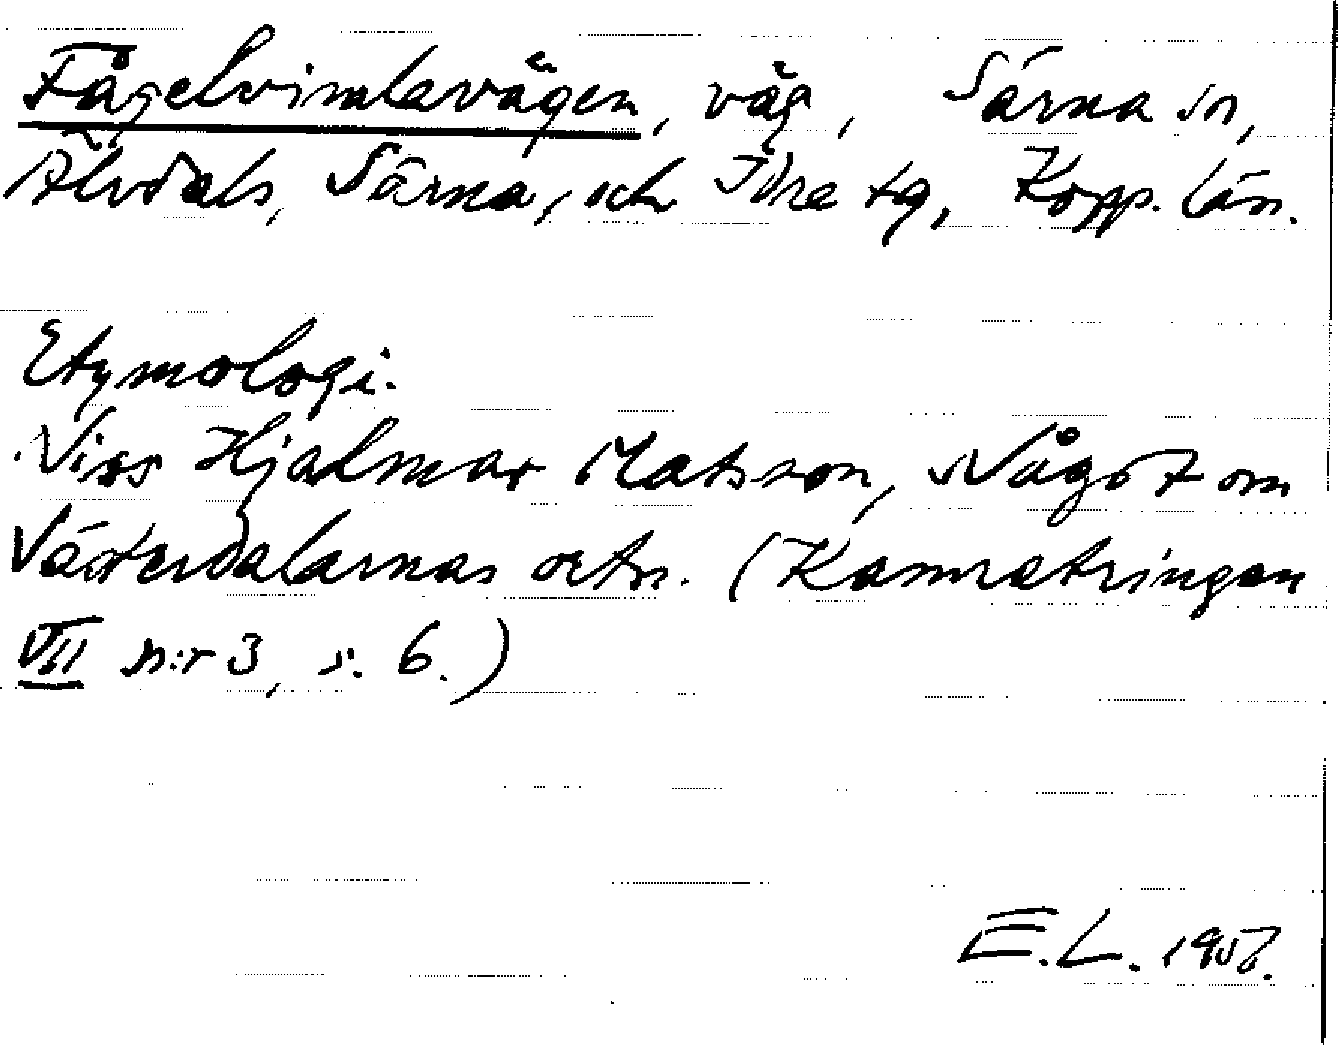 Fågelvimlavägen, väg, Särna sn,
Älvdals, Särna, och Idre tg, Kopp. län.
Etymologi.
Viss Hjalmar Matsson, Något om
Västerdalarnas ortn. (Kamratringen
VII n:r 3, s. 6.)
E.L. 1957.